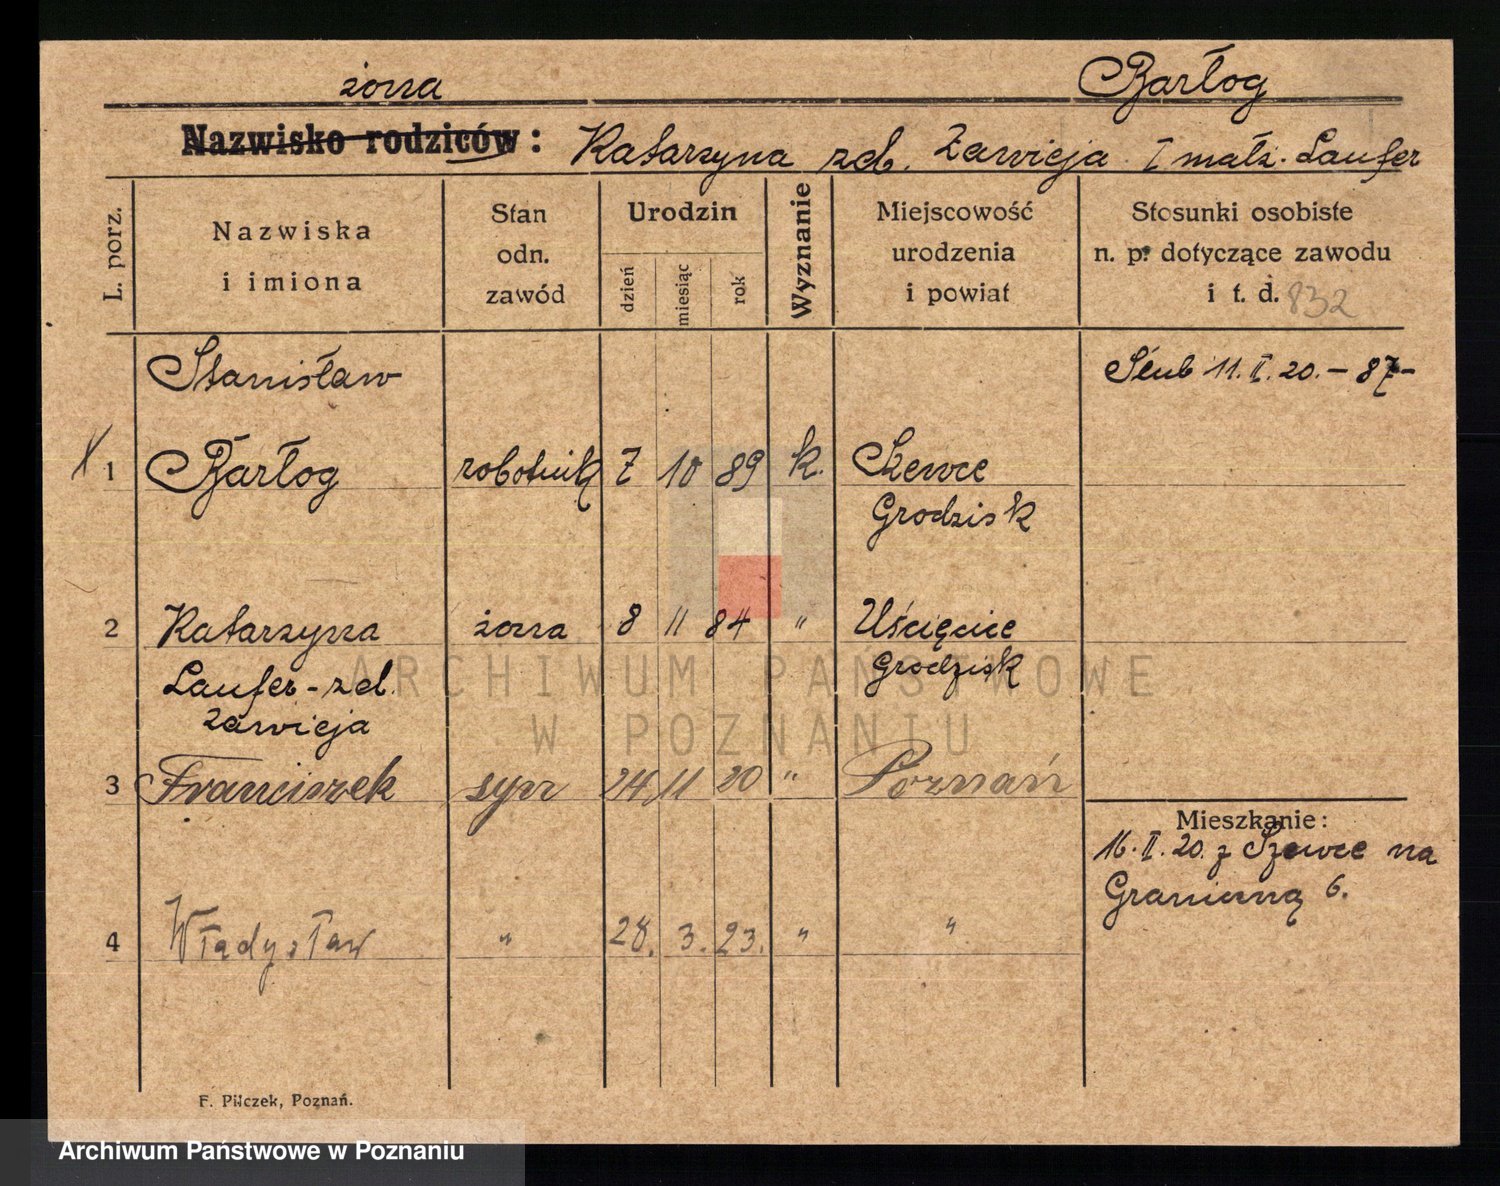 żona Barłog
Nazwisko rodziców: Katarzyna zd. Zawieja I małż. Laufer
L. porz.
Nazwiska
i imiona
Stan
odn.
zawód
Urodzin
dzień
miesiąc
rok
Wyznanie
Miejscowość
urodzenia
i powiat
Stosunki osobiste
n. p. dotyczące zawodu
i t. d. 832
Stanisław Ślub 11. II. 20. – 87 –
1 Barłog robotnik 7 10 89 k. Szewce
Grodzisk
2 Katarzyna żona 8 11 84 " Uścięcice
Laufer - zd. Grodzisk
Zawieja
3 Franciszek syn 24 11 20 " Poznań
Mieszkanie:
16. II. 20. z Szewce na
Graniczną 6.
4 Władysław " 28. 3. 23. " "
F. Pilczek, Poznań.
ARCHIWUM PAŃSTWOWE
W POZNANIU
Archiwum Państwowe w Poznaniu